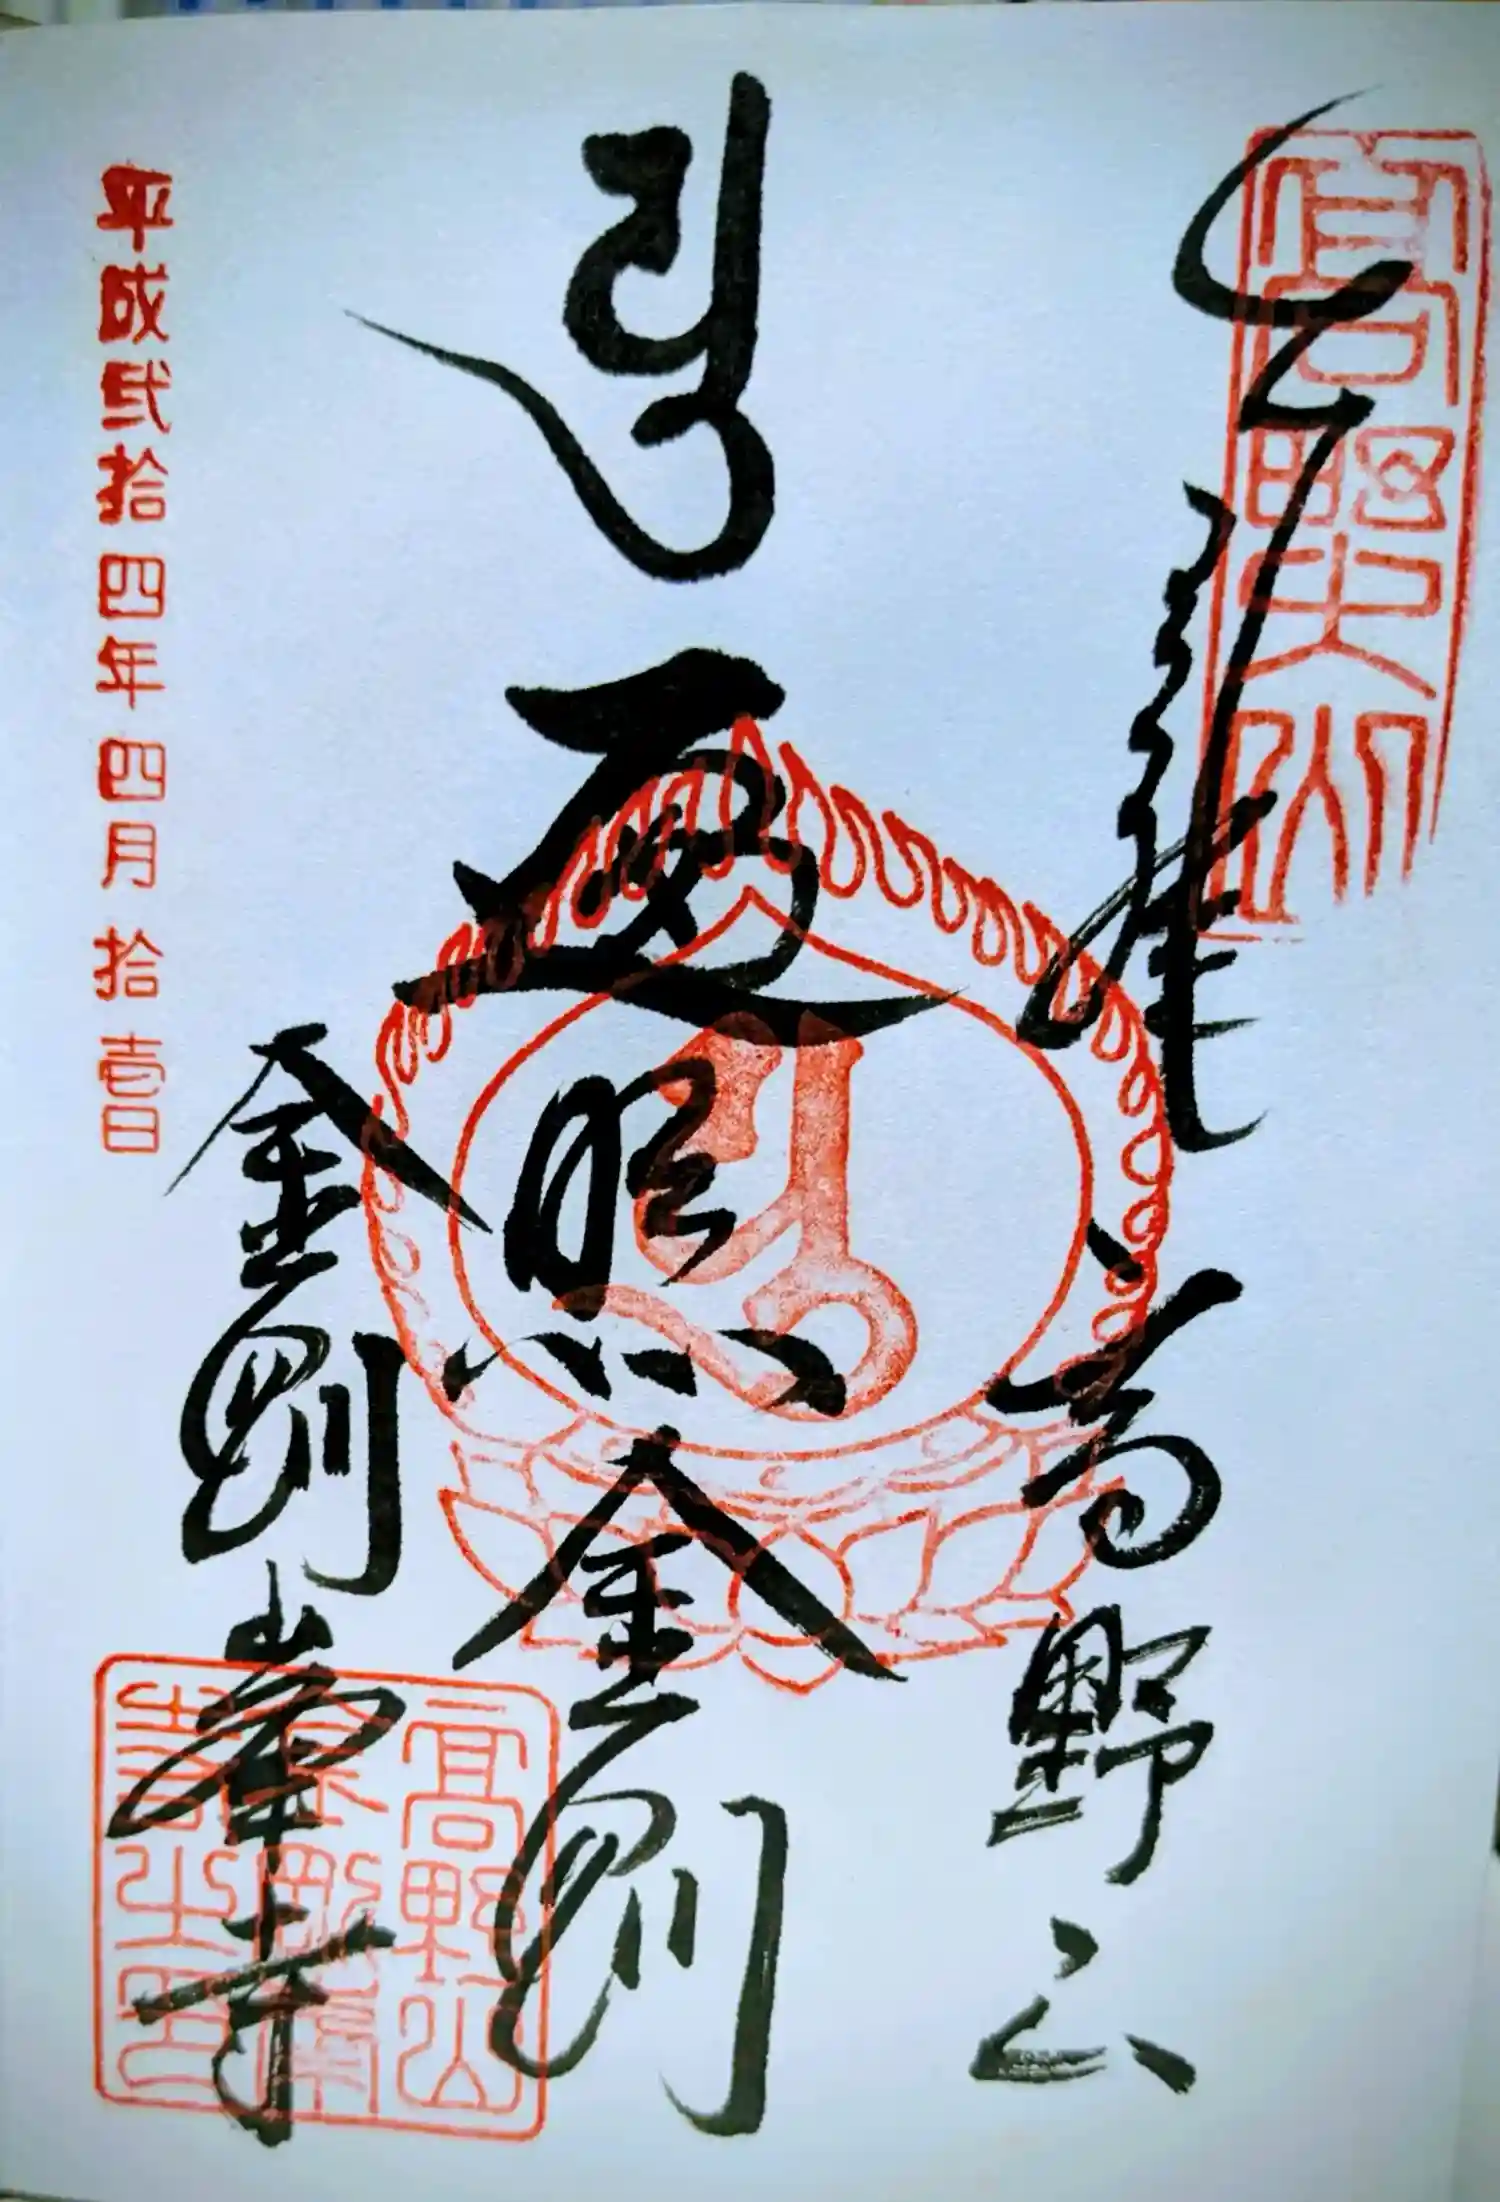 高野山
奉拝 高野山
遍照金剛
金剛峯寺
高野山
金剛峯
寺之印
平成弐拾四年四月拾壱日